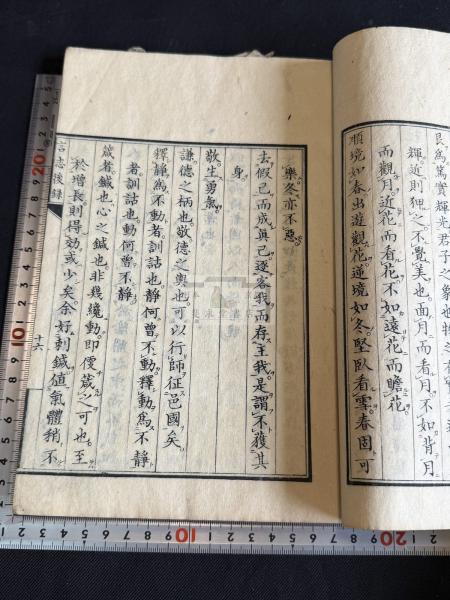 艮爲篤實輝光君子之象也物之
輝近則狎之不覺美也面月而看月不如背月
而觀月近花而看花不如遠花而瞻花
順境如春出遊觀花逆境如冬堅臥看雪春固可
樂冬亦不惡
去假己而成眞己逐客我而存主我是謂不獲其
身
敬生勇氣
謙德之柄也敬德之輿也可以行師征邑國矣
釋靜爲不動者訓詁也靜何曾不動釋動爲不靜
者訓詁也動何曾不靜
箴者鍼也心之鍼也非幾纔動即便箴之可也至
於增長則得効或少矣余好刺鍼値氣體稍不
言志後錄
十六